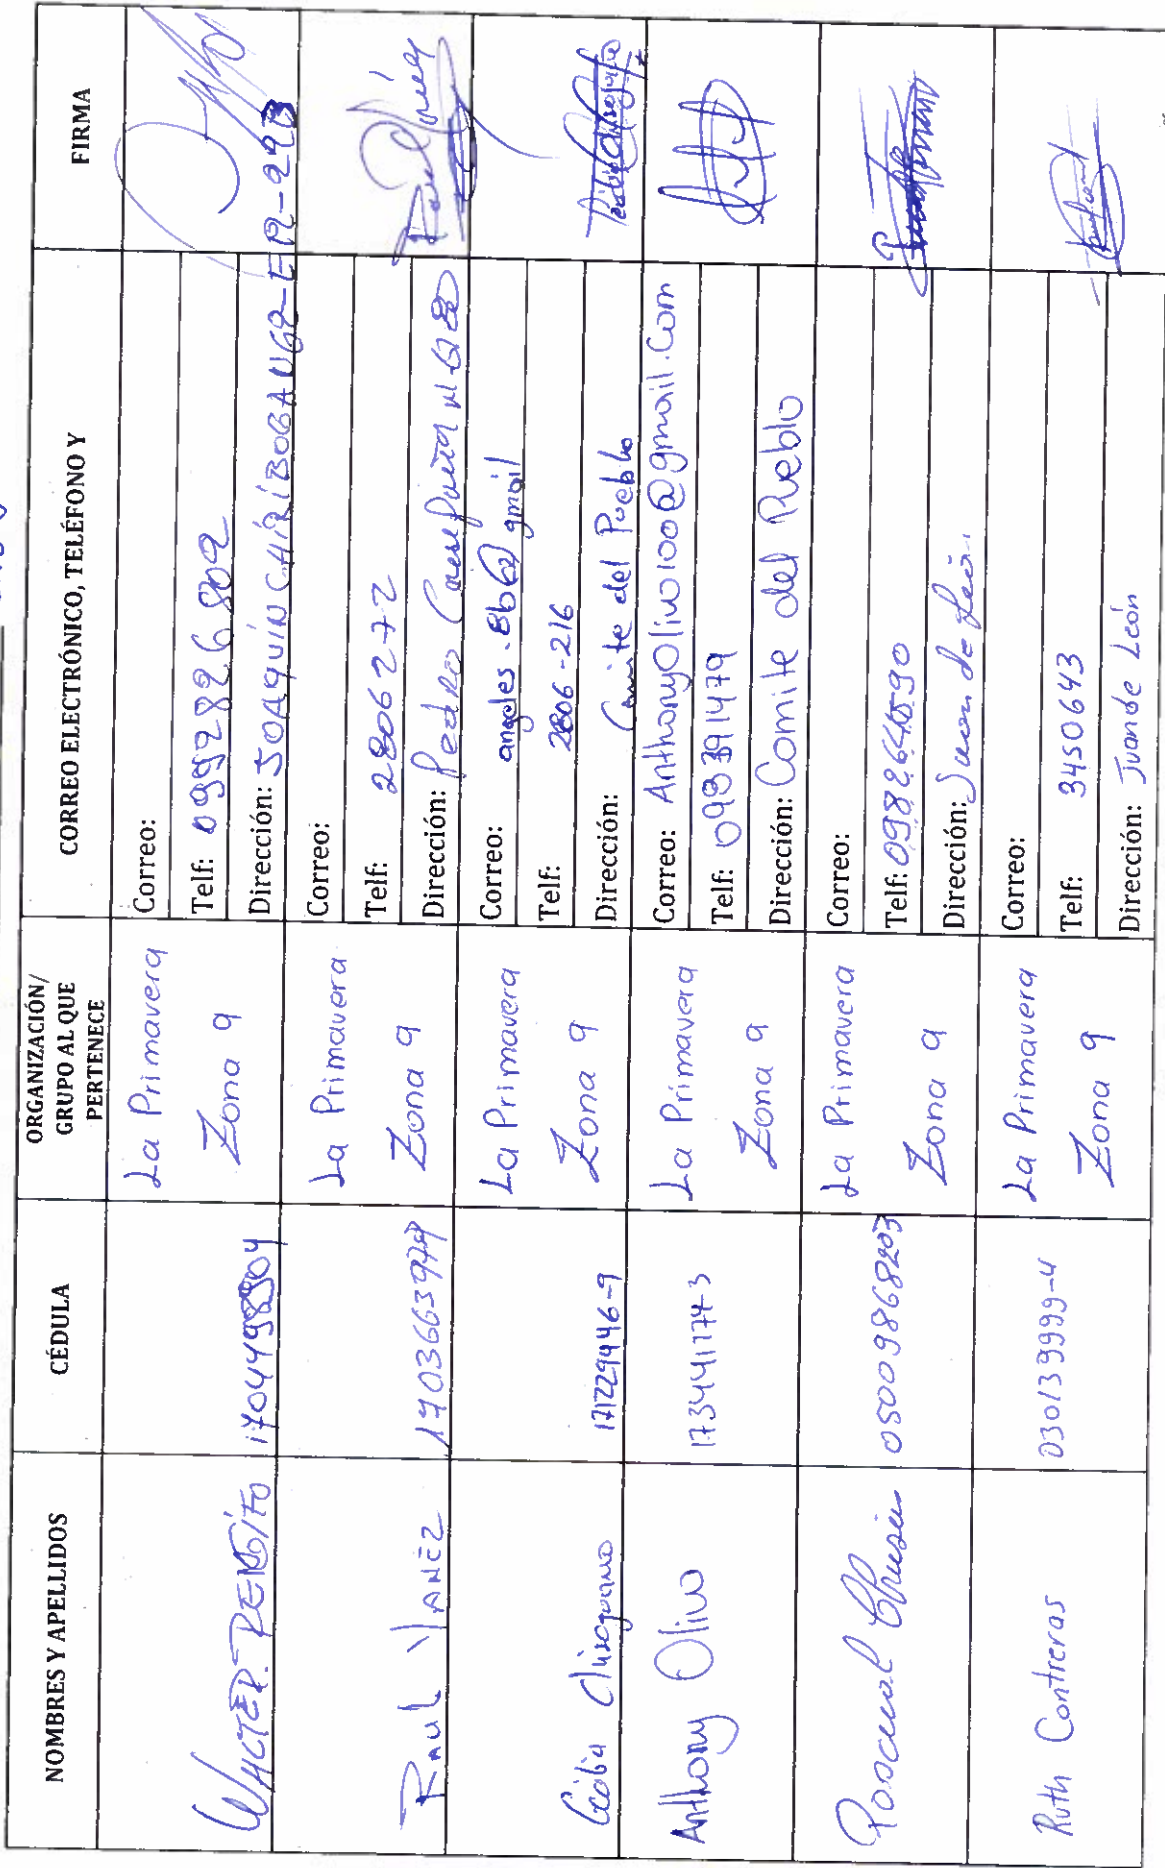 NOMBRES Y APELLIDOS
CÉDULA
ORGANIZACIÓN/
GRUPO AL QUE
PERTENECE
CORREO ELECTRÓNICO, TELÉFONO Y
FIRMA
WALTER. RENGIFO
1704498904
La Primavera
Zona 9
Correo:
Telf: 0992826802
Dirección: JOAQUÍN CHIRIBOGA N69-E12-293
RAUL YANEZ
1703663979
La Primavera
Zona 9
Correo:
Telf: 2806272
Dirección: Pedro
Cecilia
171229446-9
La Primavera
Zona 9
Correo: angeles.8b6@gmail
Telf: 2806-216
Dirección: Comite del Pueblo
Anthony Olivo
173441174-3
La Primavera
Zona 9
Correo: AnthonyOlivo100@gmail.com
Telf: 099391479
Dirección: Comite del Pueblo
Pascual
0500986823
La Primavera
Zona 9
Correo:
Telf:
Dirección: Juan de León
Ruth Contreras
030139999-4
La Primavera
Zona 9
Correo:
Telf: 3450643
Dirección: Juan de León